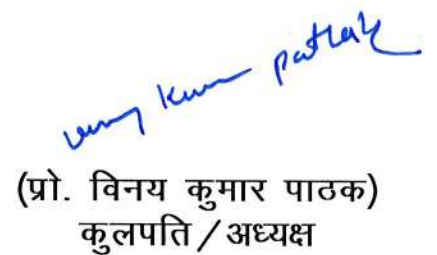 vinay kumar pathak
(प्रो. विनय कुमार पाठक)
कुलपति / अध्यक्ष